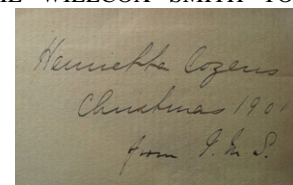 WILLCOX SMITH
Henrietta Cozens
Christmas 1901
from J. M. S.